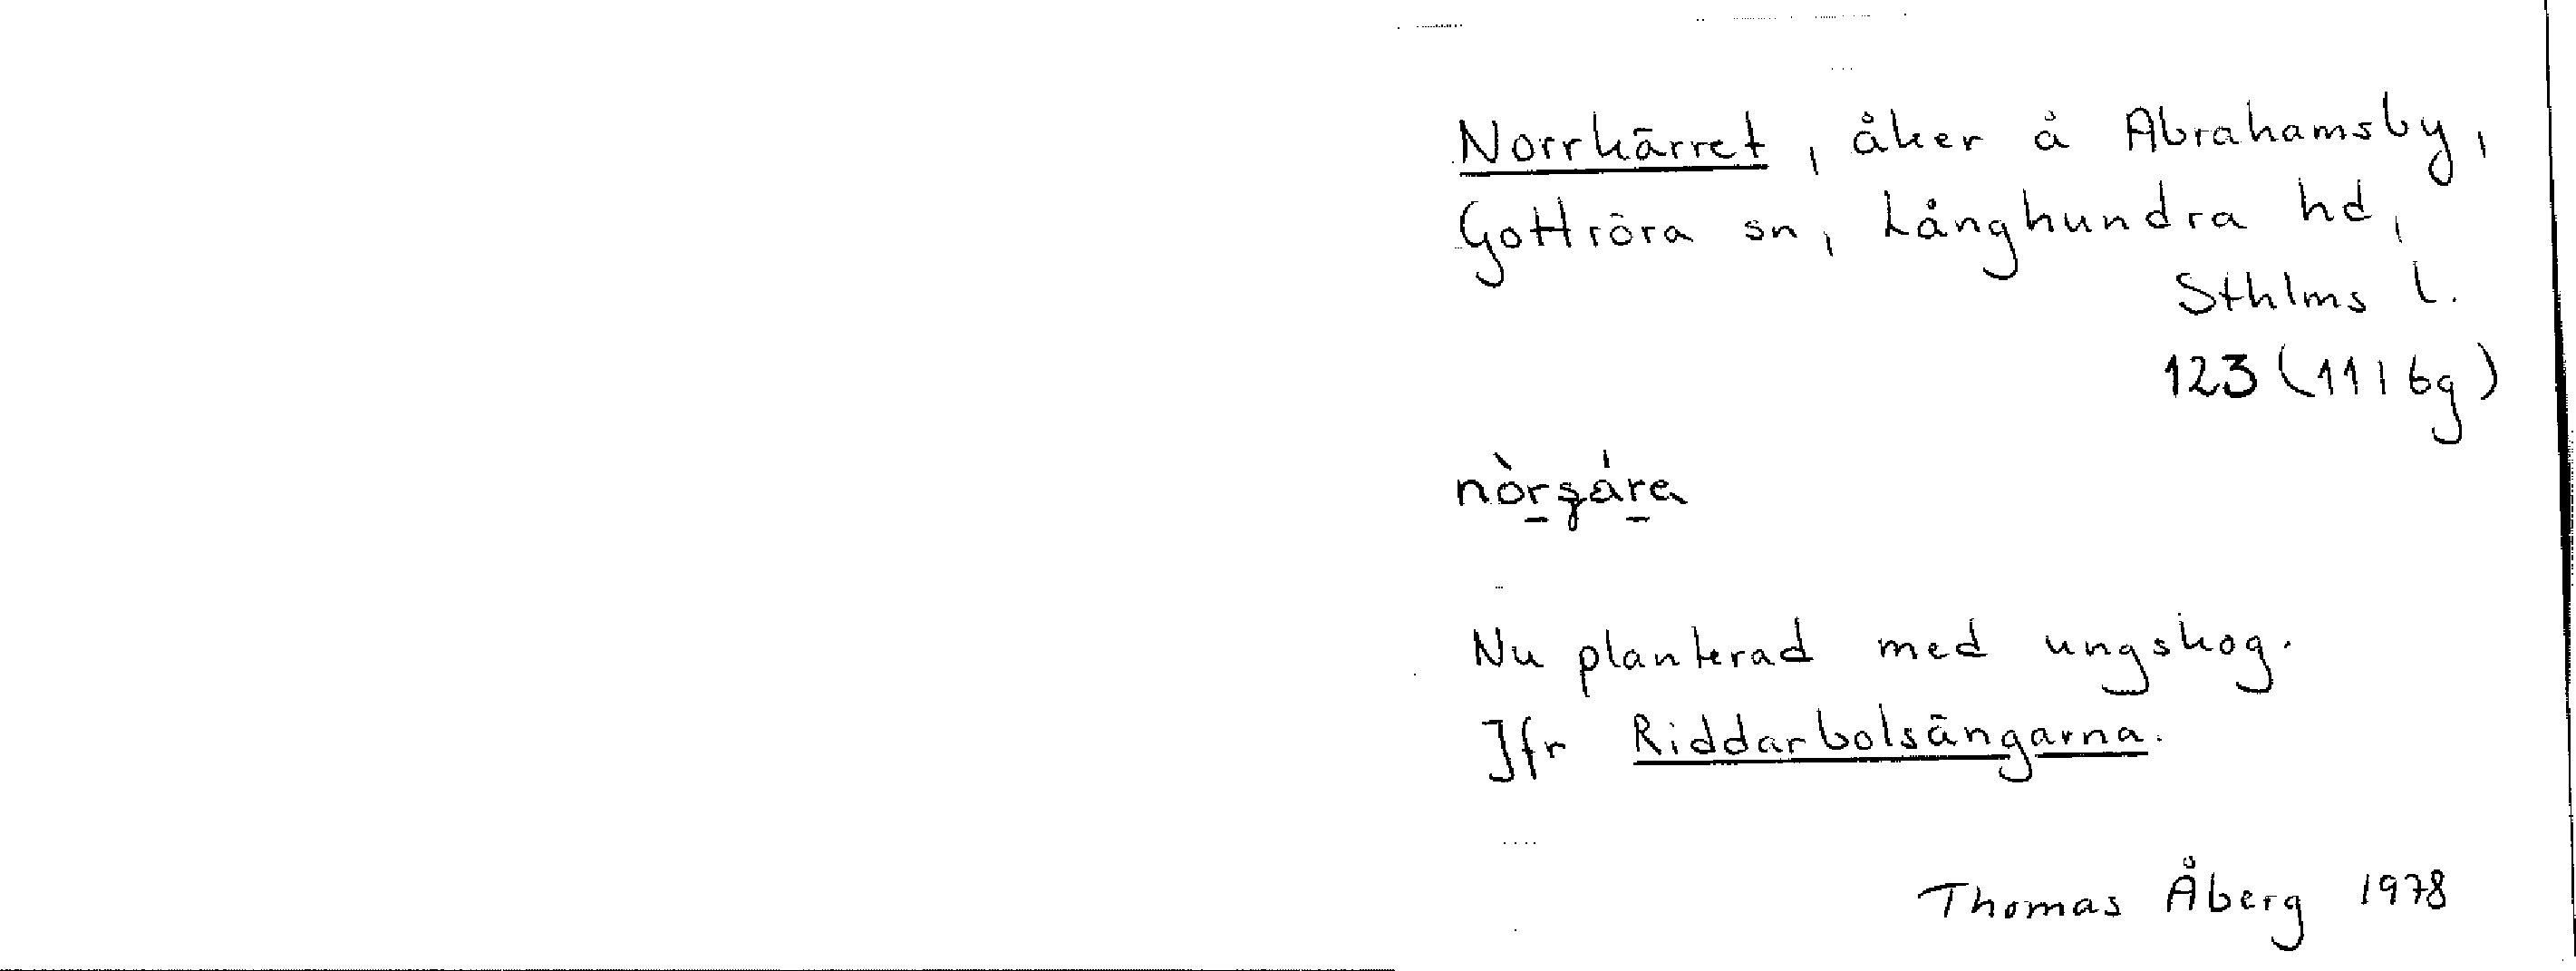 Norrkärret, åker å Abrahamsby,
Gottröra sn, Långhundra hd,
Sthlms l.
123 (11I6g)
Nu planterad med ungskog.
Jfr Riddarbolsängarna.
Thomas Åberg 1978